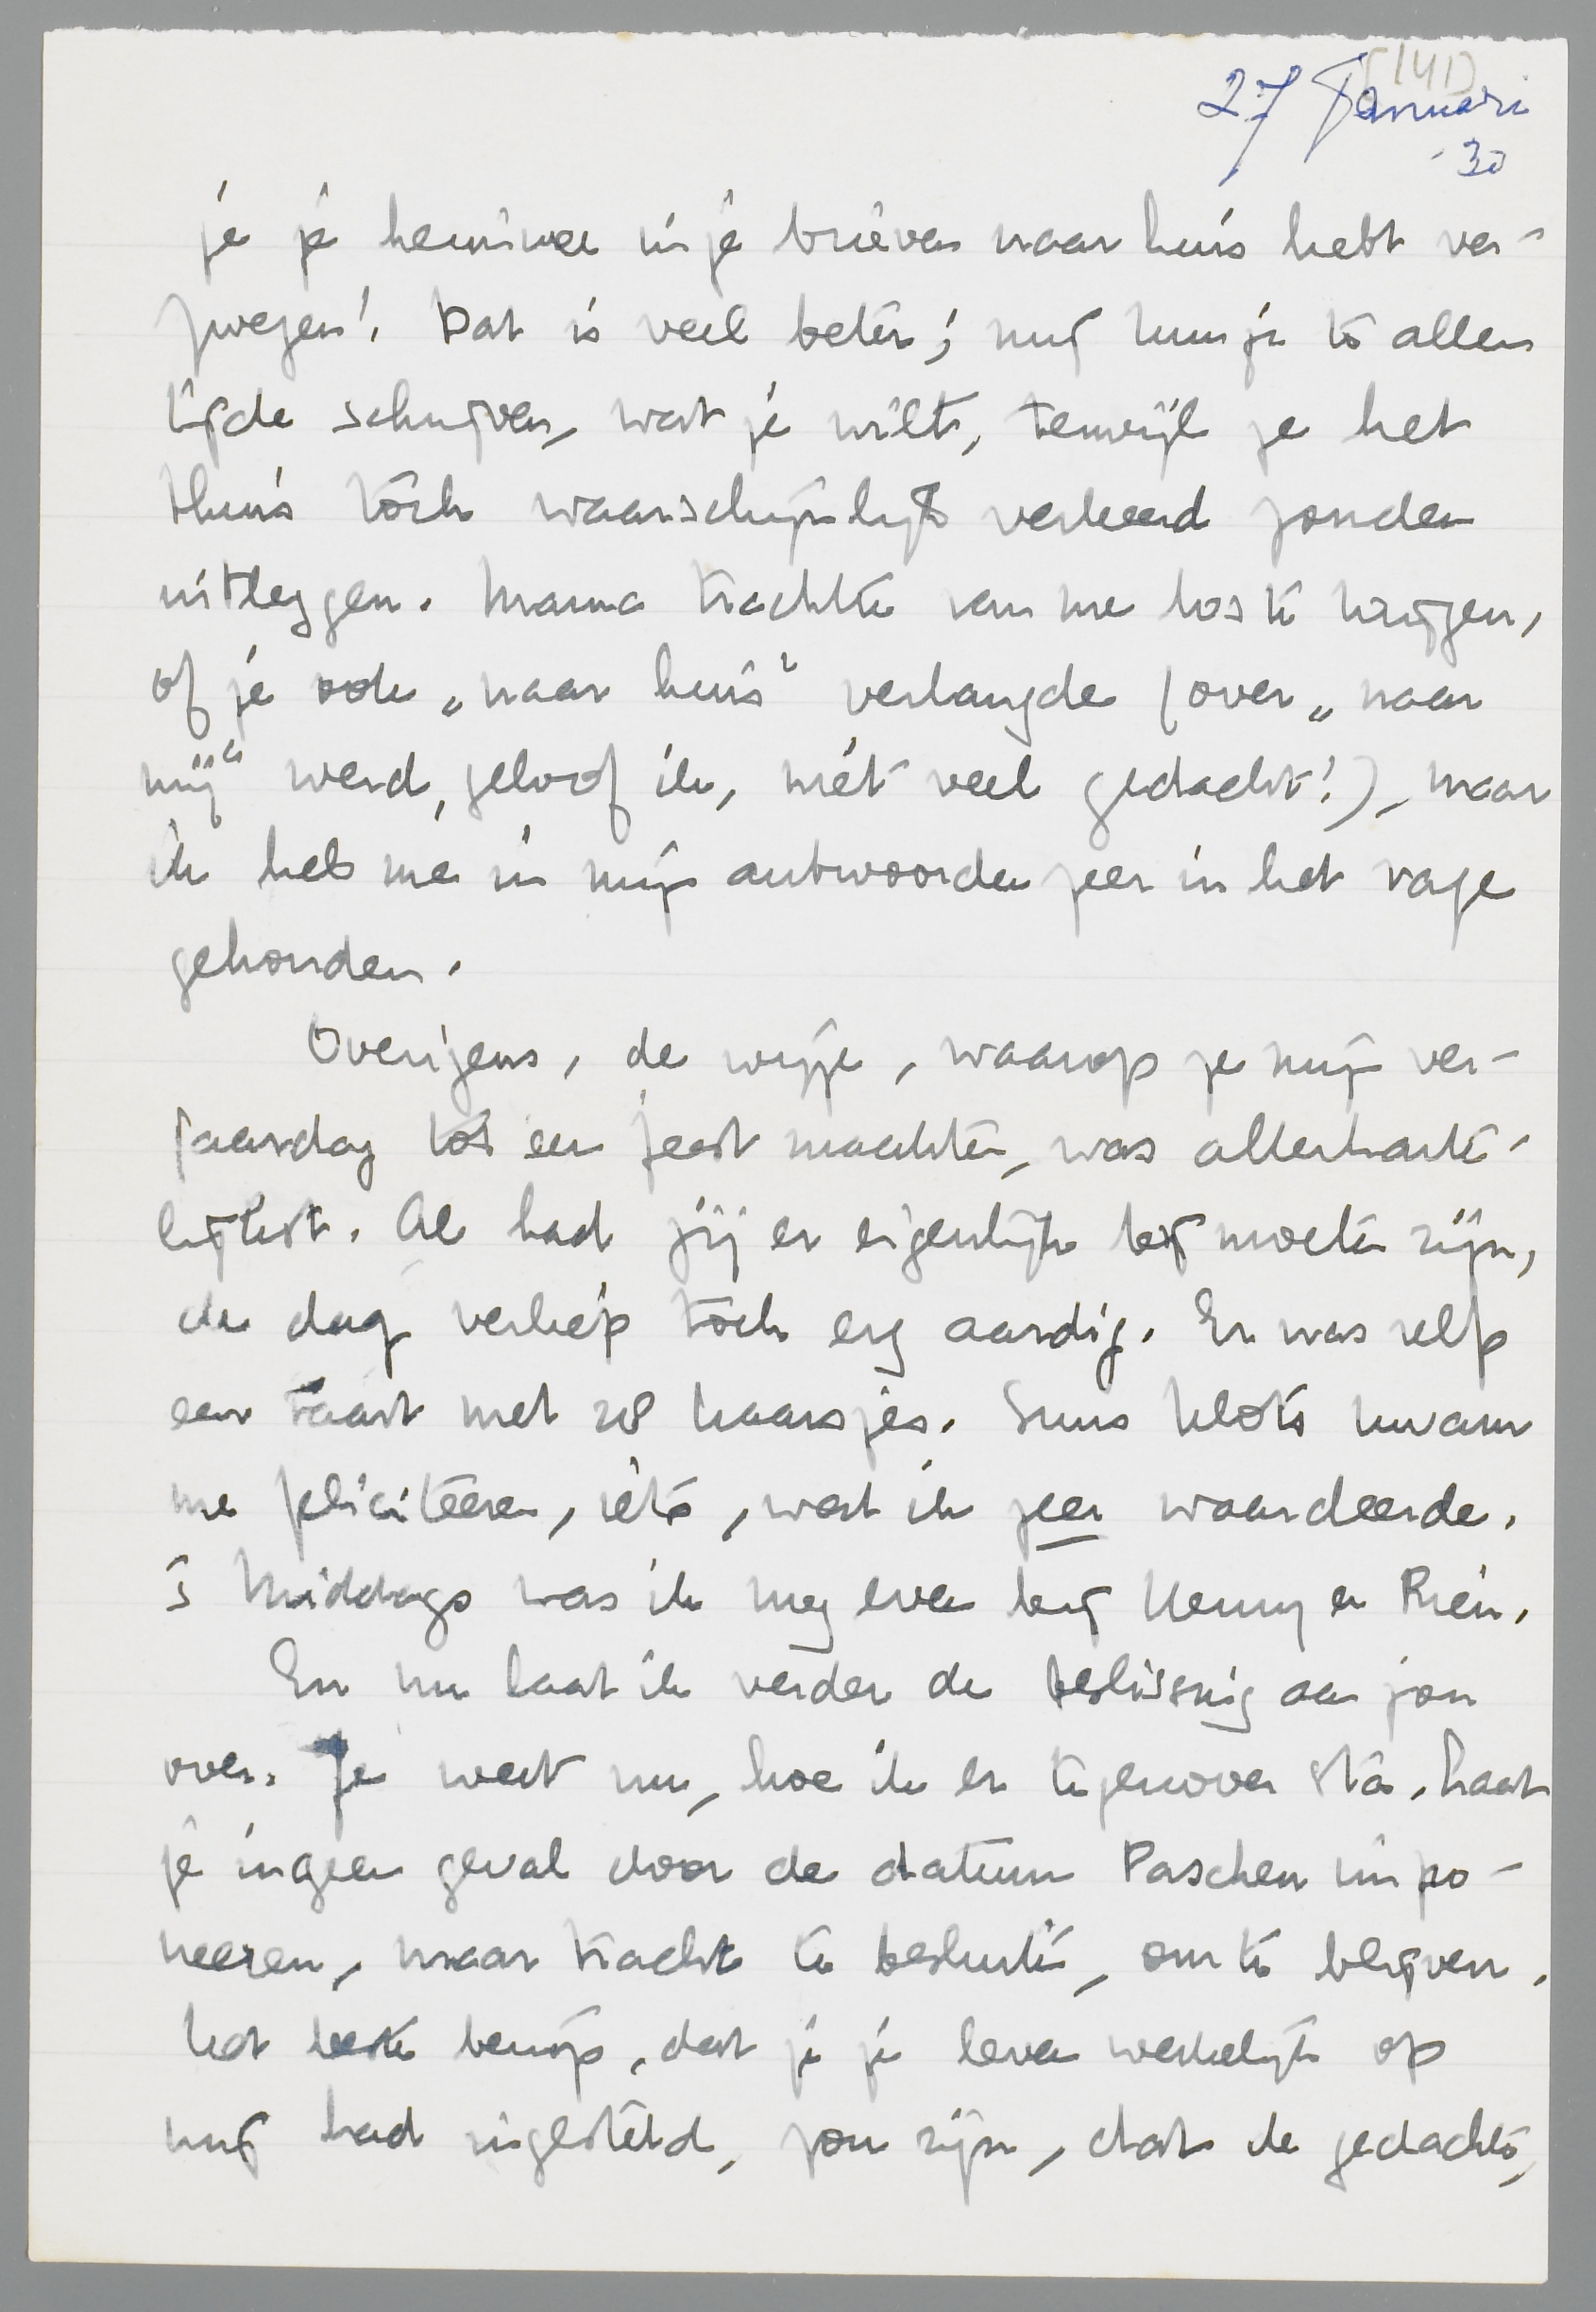 (41)
27 Januari
'30
je je heimwee in je brieven naar huis hebt ver-
zwegen! Dat is veel beter; mij kun je te allen
tijde schrijven, wat je wilt, terwijl ze het
thuis tòch waarschijnlijk verkeerd zouden
uitleggen. Mama trachtte van me los te krijgen,
of je ook „naar huis" verlangde (over „naar
mij" werd, geloof ik, niet veel gedacht!), maar
ik heb me in mijn antwoorden zeer in het vage
gehouden.
Overigens, de wijze, waarop je mijn ver-
jaardag tot een feest maakte, was allerharte-
lijkst. Al had jij er eigenlijk bij moeten zijn,
de dag verliep tòch erg aardig. Er was zelfs
een taart met 28 kaarsjes. Suus Klots kwam
me feliciteeren, iets, wat ik zeer waardeerde.
's Middags was ik nog even bij Kenny en Rien.
En nu laat ik verder de beslissing aan jou
over. Je weet nu, hoe ik er tegenover sta. Laat
je in geen geval door de datum Paschen impo-
neeren, maar tracht te besluiten, om te blijven.
Het beste bewijs, dat je je leven werkelijk op
mij had ingesteld, zou zijn, dat de gedachte,